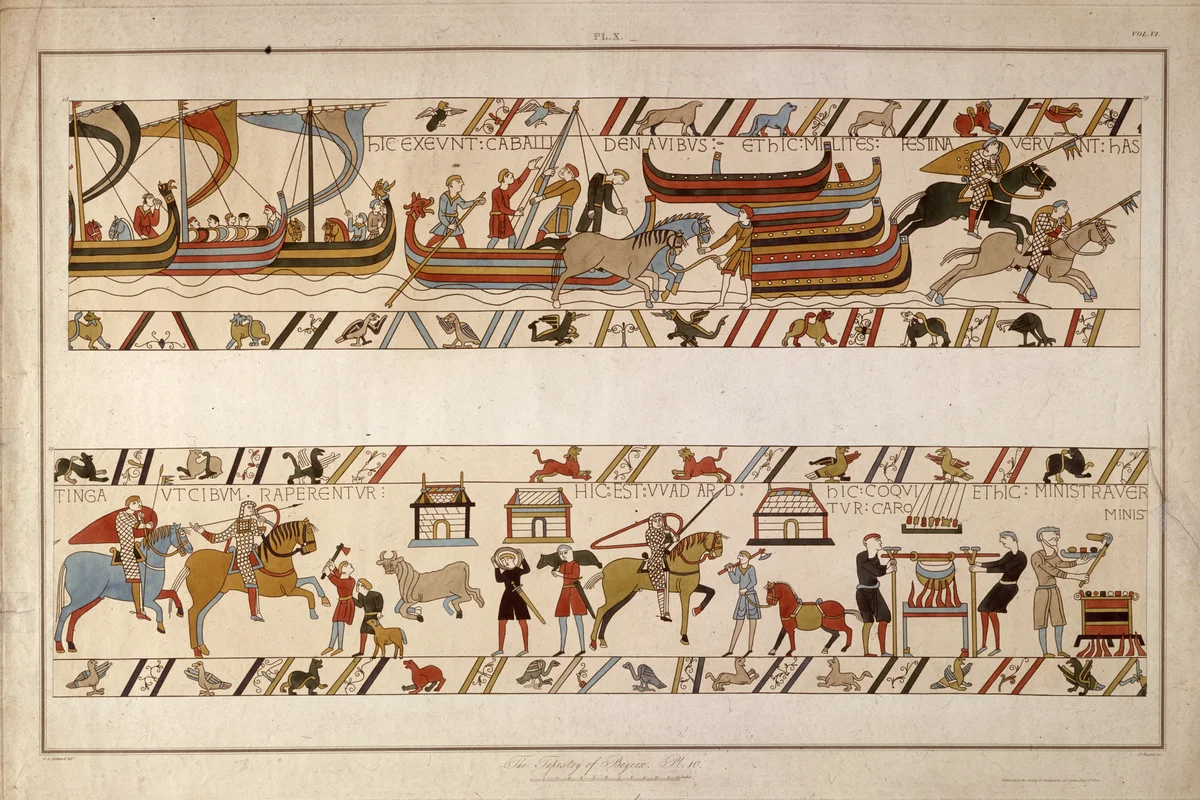 PL.X.
VOL.VI.
HIC EXEVNT: CABALLI DENAVIBUS:- ETHIC: MILITES: FESTINA VERV NT: hAS
TINGA VTCIBVM. RAPERENTVR: HIC: EST: VVAD ARD: hIC: COQVI ETHIC: MINISTRAVER
TVR: CARO MINIS
The Tapestry of Bayeux. Pl. 10.